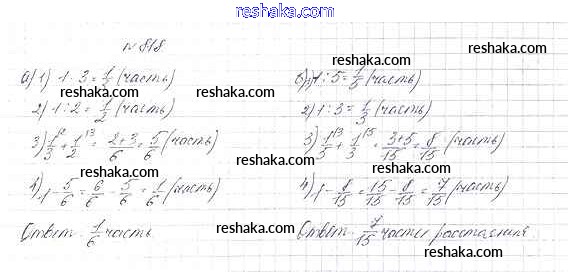 www.reshaka.com
№ 818
а) 1) 1 : 3 = 1/3 (часть)
2) 1 : 2 = 1/2 (часть)
3) 1/3 + 1/2 = 2+3/6 = 5/6 (часть)
4) 1 - 5/6 = 6/6 - 5/6 = 1/6 (часть)
Ответ: 1/6 часть
1) 1 : 5 = 1/5 (часть)
2) 1 : 3 = 1/3 (часть)
3) 1/5 + 1/3 = 3+5/15 = 8/15 (часть)
4) 1 - 8/15 = 15/15 - 8/15 = 7/15 (часть)
Ответ: 7/15 часть расстояния
reshaka.com
reshaka.com
reshaka.com
reshaka.com
reshaka.com
reshaka.com
reshaka.com
reshaka.com
reshaka.com
www.reshaka.com